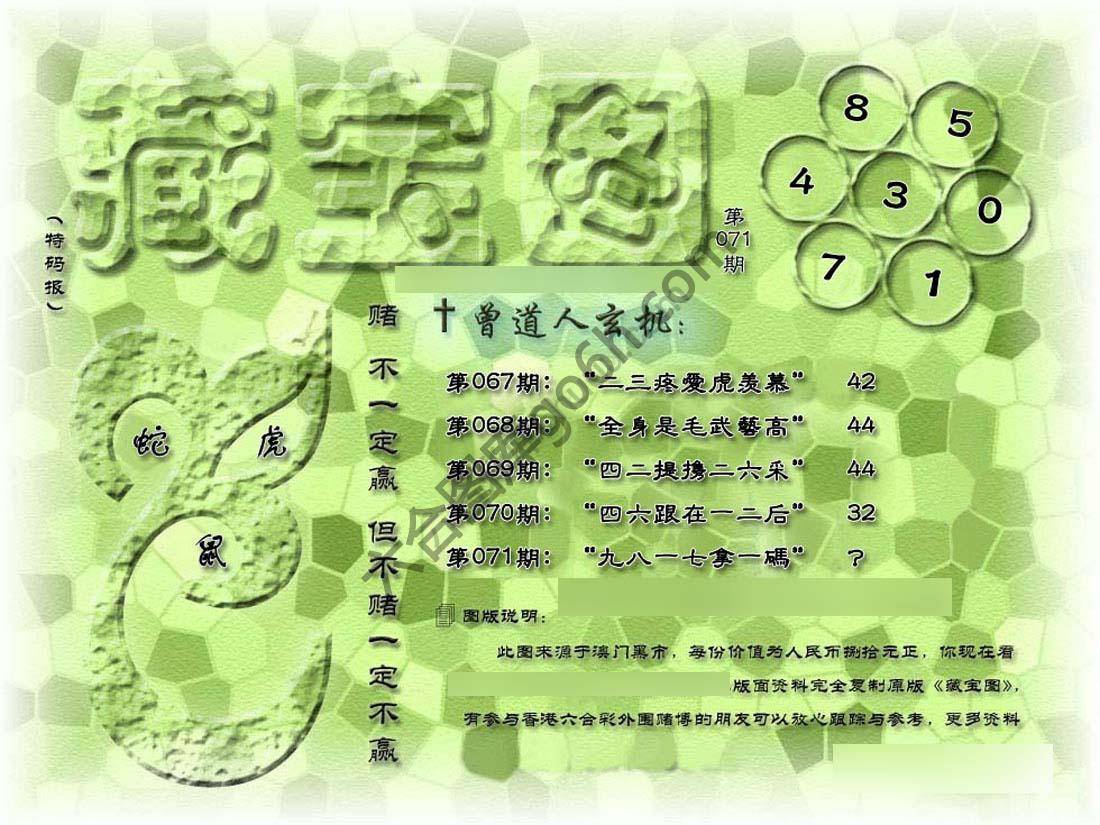 藏宝图
（特码报）
第
071
期
8 5
4 3 0
7 1
蛇 虎
鼠
赌不一定赢 但不赌一定不赢
曾道人玄机：
第067期： “二三疼愛虎羨慕” 42
第068期： “全身是毛武藝高” 44
第069期： “四二提携二六采” 44
第070期： “四六跟在一二后” 32
第071期： “九八一七拿一碼” ？
图版说明：
此图来源于澳门黑市，每份价值为人民币捌拾元正，你现在看
版面资料完全复制原版《藏宝图》，
有参与香港六合彩外围赌博的朋友可以放心跟踪与参考，更多资料
六合图库go6h.com